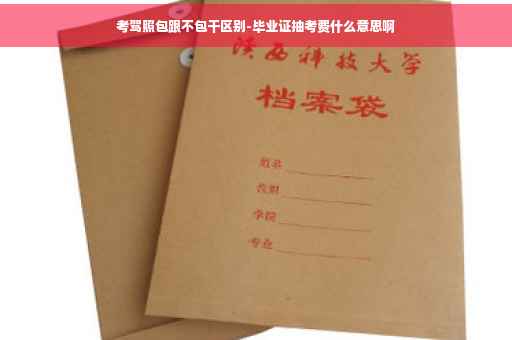 考驾照包跟不包干区别-毕业证抽考费什么意思啊
陕西科技大学
档案袋
学院
专业